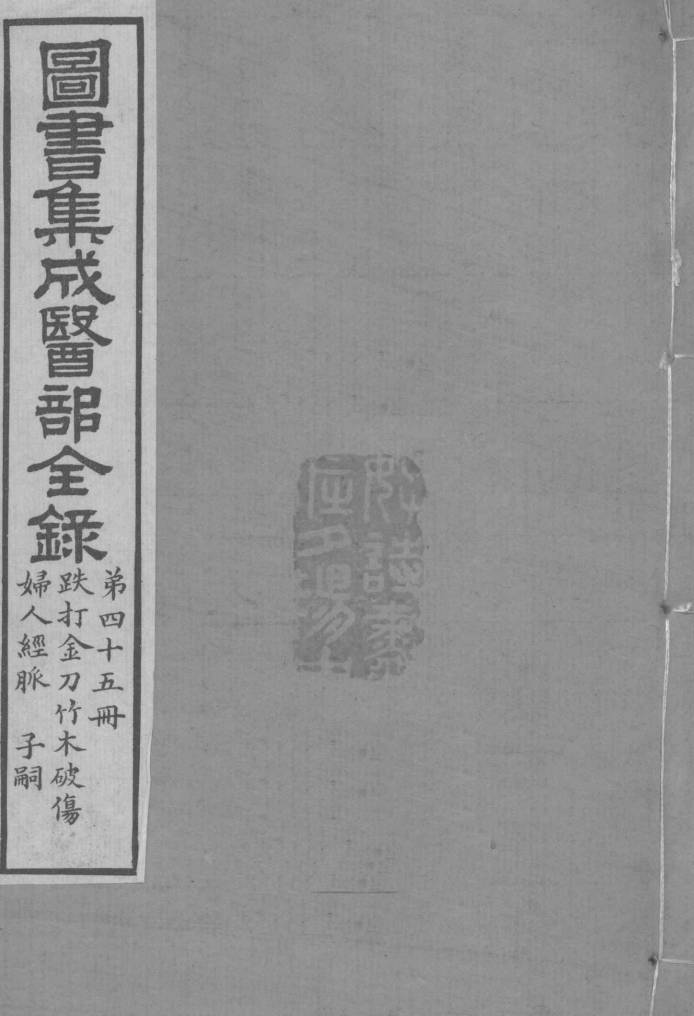 圖書集成醫部全錄
弟四十五冊
跌打金刀竹木破傷
婦人經脈　子嗣